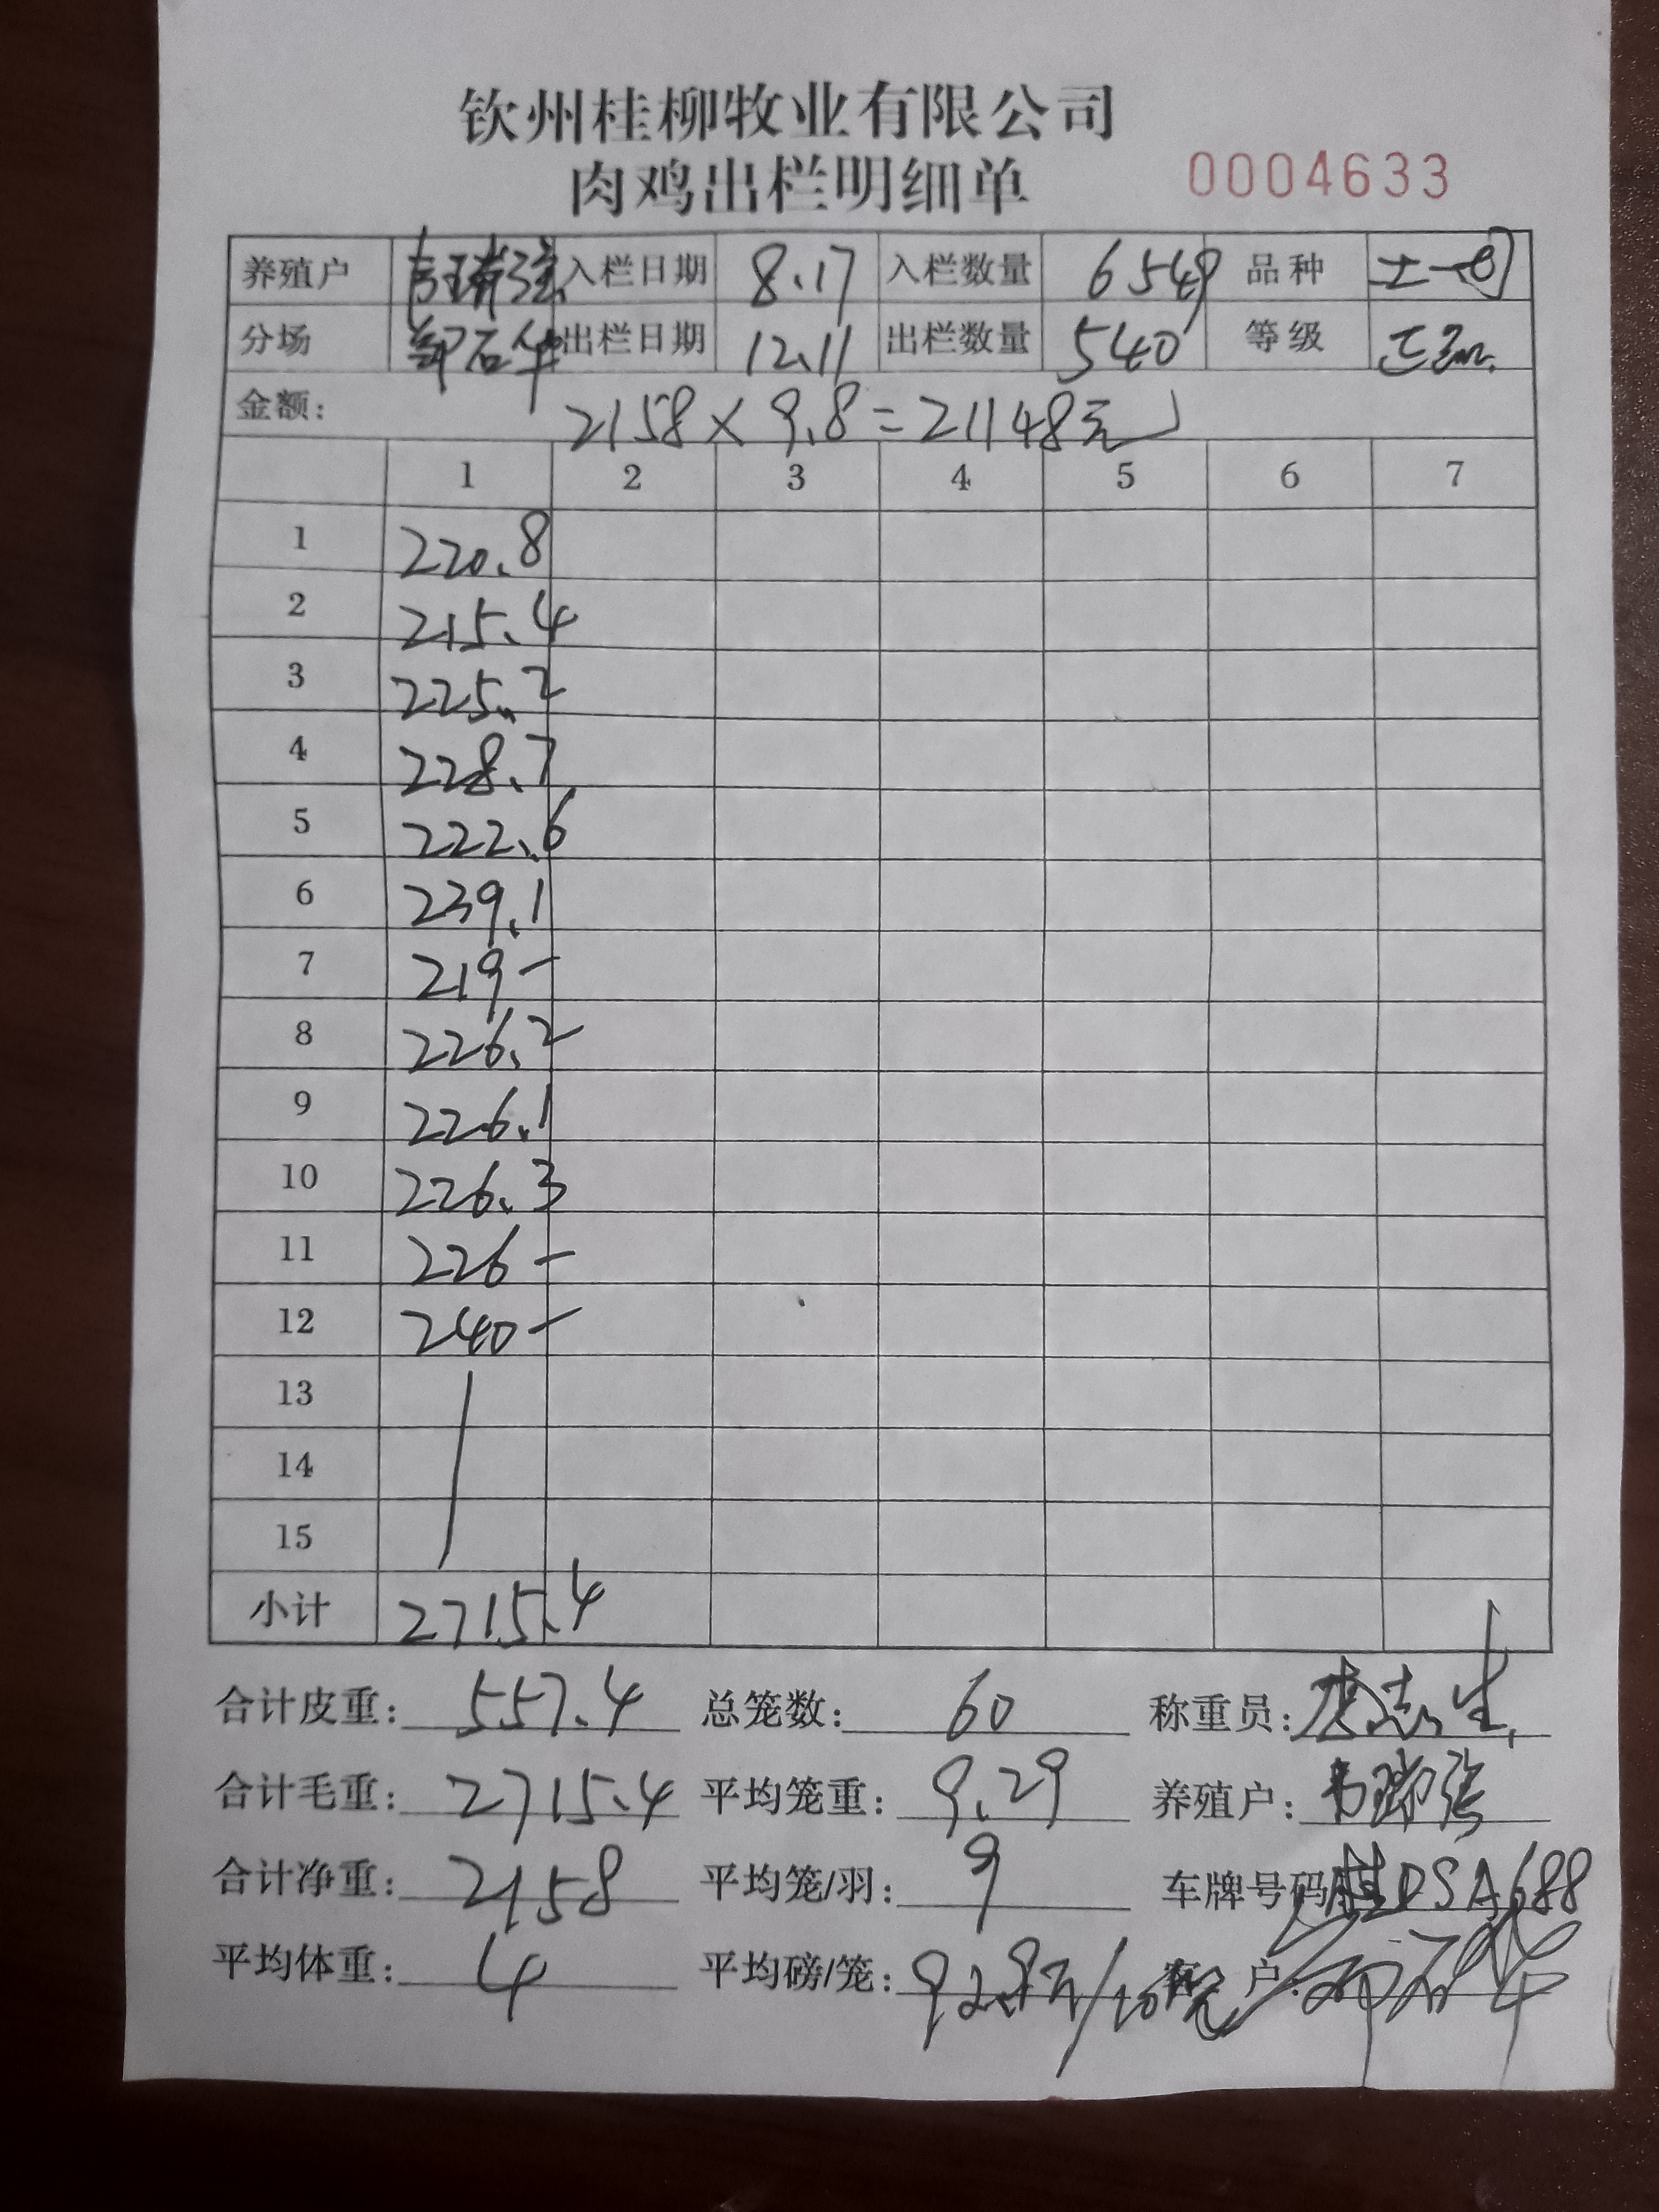 钦州桂柳牧业有限公司
肉鸡出栏明细单 0004633
养殖户 韦瑞强 入栏日期 8.17 入栏数量 6549 品种 土一
分场 石华 出栏日期 12.11 出栏数量 540 等级 正
金额: 2158×9.8=21148元
1 2 3 4 5 6 7
1 220.8
2 215.4
3 225.2
4 228.7
5 222.6
6 239.1
7 219-
8 226.2
9 226.1
10 226.3
11 226-
12 240-
13
14
15
小计 2715.4
合计皮重: 557.4 总笼数: 60 称重员: 志生
合计毛重: 2715.4 平均笼重: 9.29 养殖户: 韦瑞强
合计净重: 2158 平均笼/羽: 9 车牌号码: 桂DSA688
平均体重: 4 平均磅/笼: 户: